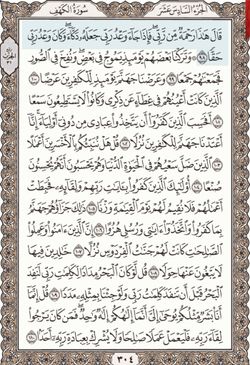 الجزء السادس عشر سورة الكهف
قَالَ هَٰذَا رَحْمَةٌ مِّن رَّبِّي فَإِذَا جَاءَ وَعْدُ رَبِّي جَعَلَهُ دَكَّاءَ وَكَانَ وَعْدُ رَبِّي
حَقًّا ٩٨ وَتَرَكْنَا بَعْضَهُمْ يَوْمَئِذٍ يَمُوجُ فِي بَعْضٍ وَنُفِخَ فِي الصُّورِ
فَجَمَعْنَاهُمْ جَمْعًا ٩٩ وَعَرَضْنَا جَهَنَّمَ يَوْمَئِذٍ لِّلْكَافِرِينَ عَرْضًا ١٠٠
الَّذِينَ كَانَتْ أَعْيُنُهُمْ فِي غِطَاءٍ عَن ذِكْرِي وَكَانُوا لَا يَسْتَطِيعُونَ سَمْعًا
١٠١ أَفَحَسِبَ الَّذِينَ كَفَرُوا أَن يَتَّخِذُوا عِبَادِي مِن دُونِي أَوْلِيَاءَ إِنَّا
أَعْتَدْنَا جَهَنَّمَ لِلْكَافِرِينَ نُزُلًا ١٠٢ قُلْ هَلْ نُنَبِّئُكُم بِالْأَخْسَرِينَ أَعْمَالًا
١٠٣ الَّذِينَ ضَلَّ سَعْيُهُمْ فِي الْحَيَاةِ الدُّنْيَا وَهُمْ يَحْسَبُونَ أَنَّهُمْ يُحْسِنُونَ
صُنْعًا ١٠٤ أُولَٰئِكَ الَّذِينَ كَفَرُوا بِآيَاتِ رَبِّهِمْ وَلِقَائِهِ فَحَبِطَتْ
أَعْمَالُهُمْ فَلَا نُقِيمُ لَهُمْ يَوْمَ الْقِيَامَةِ وَزْنًا ١٠٥ ذَٰلِكَ جَزَاؤُهُمْ جَهَنَّمُ
بِمَا كَفَرُوا وَاتَّخَذُوا آيَاتِي وَرُسُلِي هُزُوًا ١٠٦ إِنَّ الَّذِينَ آمَنُوا وَعَمِلُوا
الصَّالِحَاتِ كَانَتْ لَهُمْ جَنَّاتُ الْفِرْدَوْسِ نُزُلًا ١٠٧ خَالِدِينَ فِيهَا
لَا يَبْغُونَ عَنْهَا حِوَلًا ١٠٨ قُل لَّوْ كَانَ الْبَحْرُ مِدَادًا لِّكَلِمَاتِ رَبِّي لَنَفِدَ
الْبَحْرُ قَبْلَ أَن تَنفَدَ كَلِمَاتُ رَبِّي وَلَوْ جِئْنَا بِمِثْلِهِ مَدَدًا ١٠٩ قُلْ إِنَّمَا
أَنَا بَشَرٌ مِّثْلُكُمْ يُوحَىٰ إِلَيَّ أَنَّمَا إِلَٰهُكُمْ إِلَٰهٌ وَاحِدٌ فَمَن كَانَ يَرْجُو
لِقَاءَ رَبِّهِ فَلْيَعْمَلْ عَمَلًا صَالِحًا وَلَا يُشْرِكْ بِعِبَادَةِ رَبِّهِ أَحَدًا ١١٠
٣٠٤